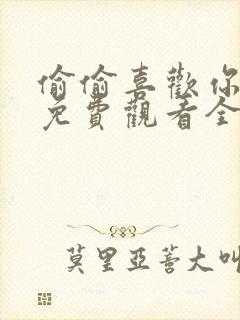 偷偷喜歡你
免費觀看全
莫里亞蒂大叫